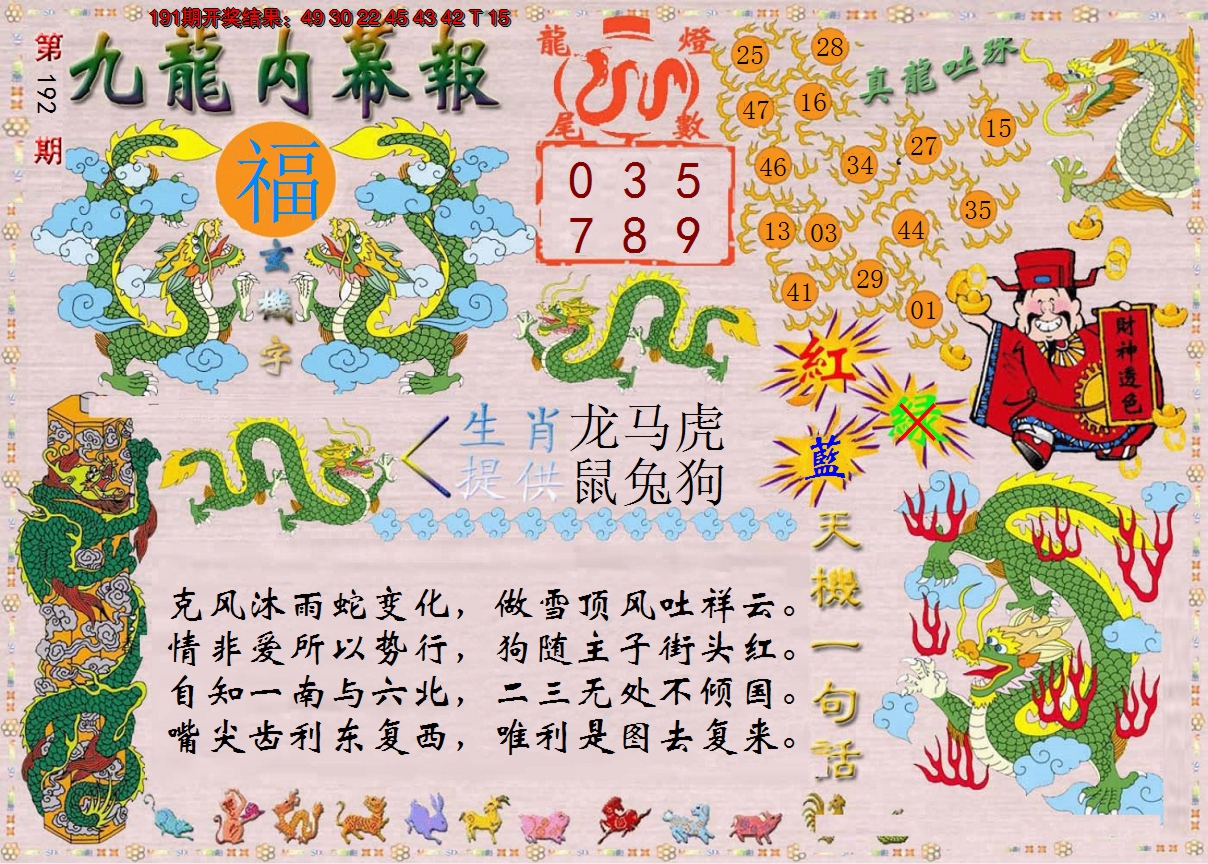 191期开奖结果：49 30 22 45 43 42 T 15
第192期
九龍内幕報
福
玄機字
龍燈
尾數
0 3 5
7 8 9
真龍吐珠
25 28
47 16
27 15
46 34
35
13 03 44
29
41 01
財神透色
紅
绿
藍
生肖 龙马虎
提供 鼠兔狗
天機一句話
克风沐雨蛇变化，做雪顶风吐祥云。
情非爱所以势行，狗随主子街头红。
自知一南与六北，二三无处不倾国。
嘴尖齿利东复西，唯利是图去复来。